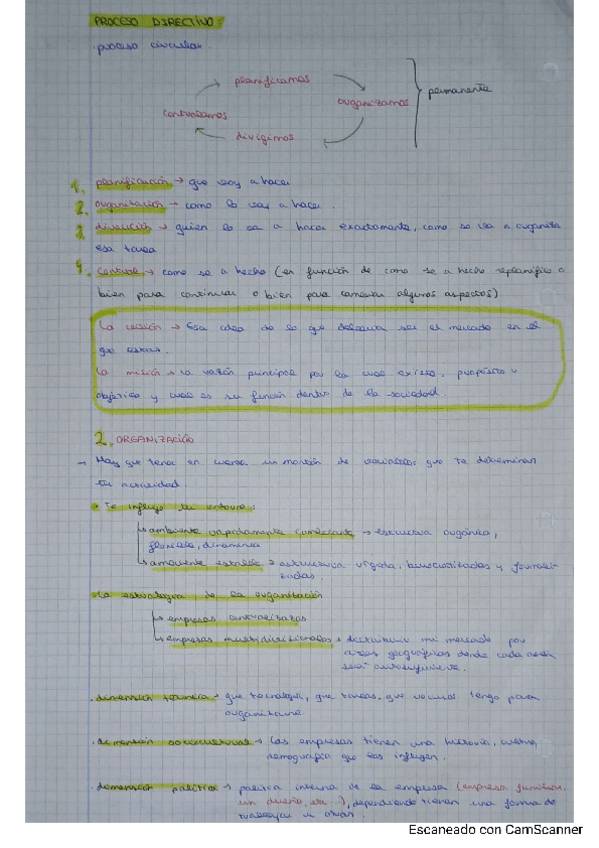 PROCESO DIRECTIVO:
· proceso circular.
planificamos
organizamos
permanente
controlamos
dirigimos
1. planificación → que voy a hacer
2. organización → como lo voy a hacer.
3. dirección → quien lo va a hacer exactamente, como se va a organizar
esa tarea
4. control → como se a hecho (en función de como se a hecho replanifico o
bien para continuar o bien para cambiar algunos aspectos)
La visión → Esa idea de lo que debería ser el mercado en el
que estás.
La misión → la razón principal por la cual existe, propósito u
objetivo y cual es su función dentro de la sociedad.
2. ORGANIZACIÓN
→ Hay que tener en cuenta un montón de variables que te determinan
tu actividad.
• Te influye tu entorno:
↳ ambiente rapidamente cambiante → estructura orgánica,
flexible, dinámica
↳ ambiente estable → estructura rígida, burocratizadas y formali-
zadas
· La estrategia de la organización
↳ empresas centralizadas
↳ empresas multidivisionales → distribuir mi mercado por
áreas geográficas donde cada área
será autosuficiente.
· dimensión técnica → que tecnología, que tareas, que recursos tengo para
organizarme.
· dimensión sociocultural → Las empresas tienen una historia, cultura,
demografía que las influyen.
· dimensión política → política interna de la empresa (empresa familiar,
un dueño, etc...), dependiendo tienen una forma de
trabajar u otras.
Escaneado con CamScanner